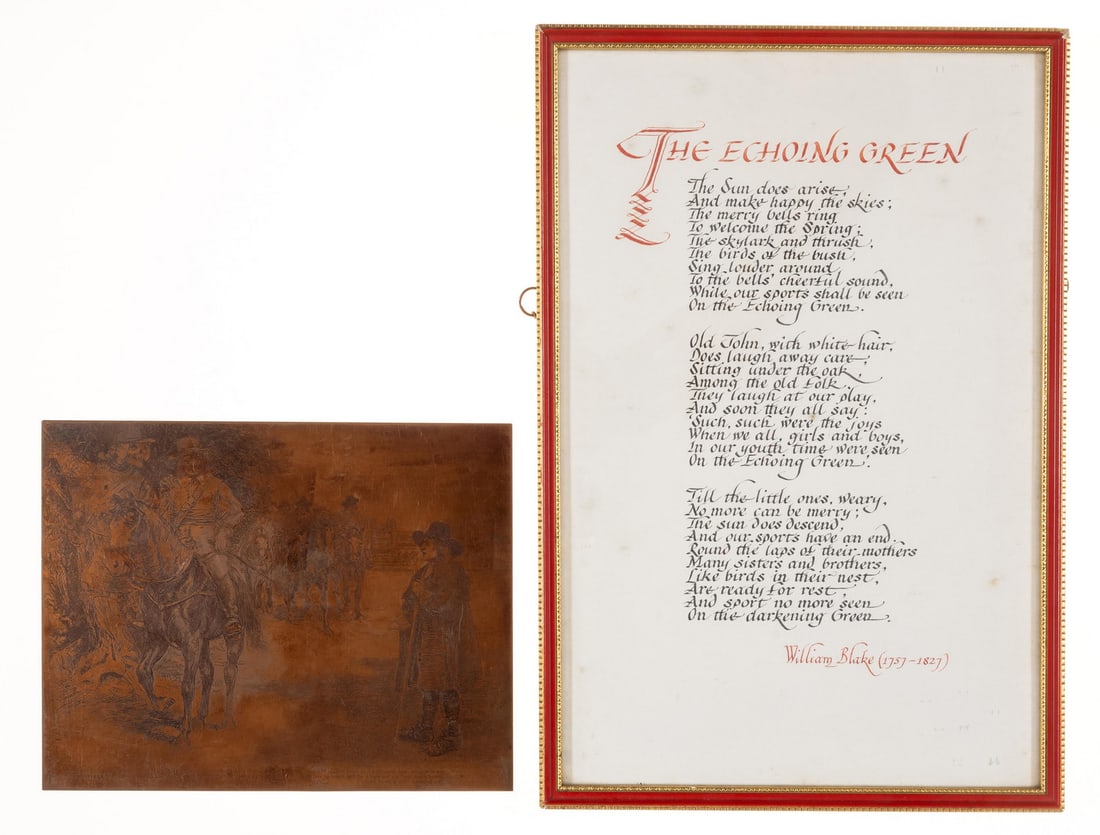 THE ECHOING GREEN
The Sun does arise,
And make happy the skies;
The merry bells ring
To welcome the Spring;
The skylark and thrush,
The birds of the bush,
Sing louder around
To the bells' cheerful sound,
While our sports shall be seen
On the Echoing Green.
Old John, with white hair,
Does laugh away care,
Sitting under the oak,
Among the old folk.
They laugh at our play,
And soon they all say:
'Such, such were the joys
When we all, girls and boys,
In our youth time were seen
On the Echoing Green.'
Till the little ones, weary,
No more can be merry;
The sun does descend,
And our sports have an end.
Round the laps of their mothers
Many sisters and brothers,
Like birds in their nest,
Are ready for rest,
And sport no more seen
On the darkening Green.
William Blake (1757-1827)